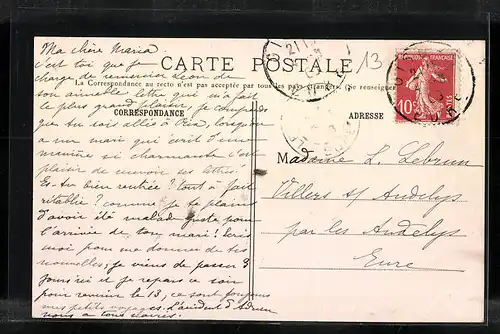 Ma chère Maria
CARTE POSTALE
13
La Correspondance au recto n'est pas acceptée par tous les pays étrangers (Se renseigner
CORRESPONDANCE
ADRESSE
c'est toi que je
charge de remercier Léon de
son aimable lettre qui m'a fait
le plus grand plaisir, je comprends
que tu sois allée à lorsque
a un mari qui écrit d'une
manière si charmante c'est
plaisir de recevoir ses lettres.
Es-tu bien rentrée? Tout à fait
rétablie? comme je te plains
d'avoir été malade juste pour
l'arrivée de ton mari! Écris
moi pour me donner de tes
nouvelles; je viens de passer 3
jours ici et je repars ce soir
pour revenir le 13, ce sont toujours
mes petits voyages.
nous a tous
Madame L. Lebrun
Villers s/ Andelys
par les Andelys
Eure
RÉPUBLIQUE FRANÇAISE
10c
POSTES